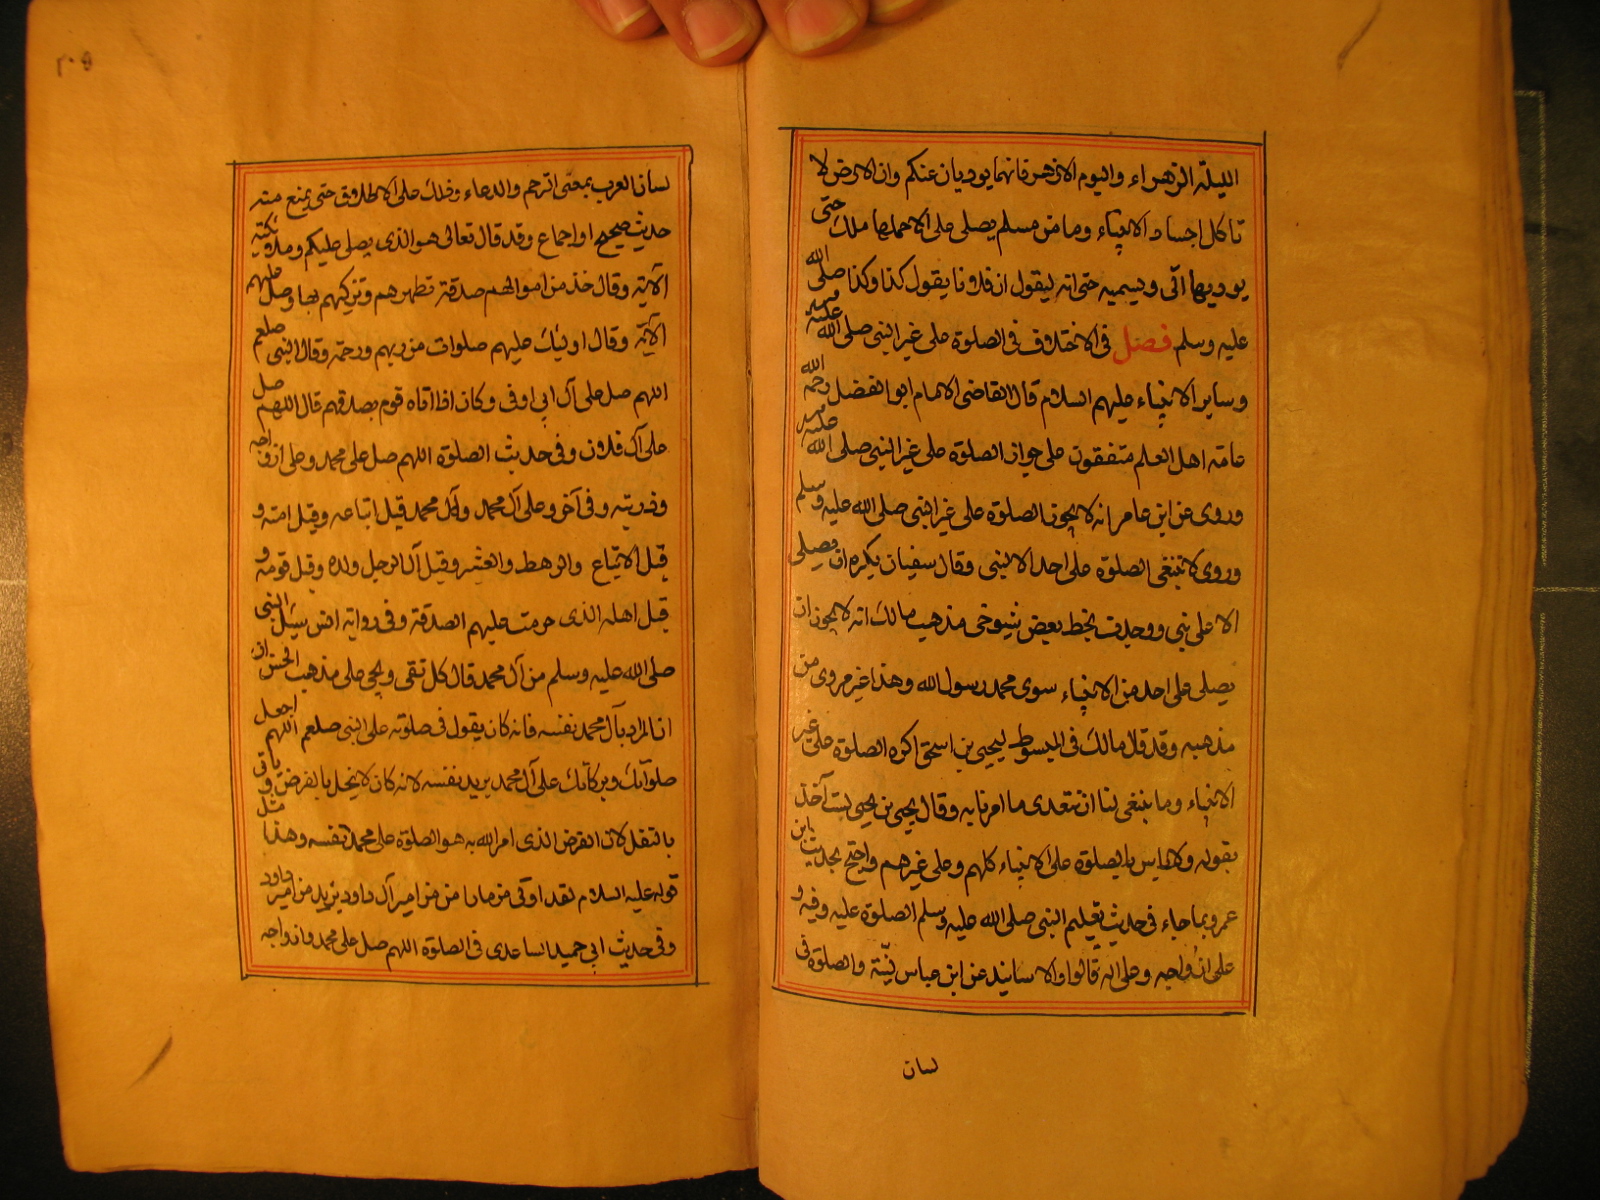 الليلة الزهراء واليوم الازهر فانهما يوديان عنكم وان الارض لا
تاكل اجساد الانبياء وما من مسلم يصلى على الا حملها ملك حتى
يوديها الّى ويسميه حتى انه ليقول ان فلانا يقول كذا وكذا صلى الله
عليه وسلم فصل فى الاختلاف فى الصلوة على غير النبى صلى الله عليه وسلم
وساير الانبياء عليهم السلام قال القاضى الامام ابو الفضل رحمه الله
عامة اهل العلم متفقون على جواز الصلوة على غير النبى صلى الله عليه وسلم
وروى عن ابن عامر انه لا يجوز الصلوة على غير النبى صلى الله عليه وسلم
وروى لا تنبغى الصلوة على احد الا النبى وقال سفيان يكره ان يصلى
الا على نبى ووجدت بخط بعض شيوخى مذهب مالك انه لا يجوز ان
يصلى على احد من الانبياء سوى محمد رسول الله وهذا غير مروى من
مذهبه وقد قال مالك فى المبسوط ليحيى بن اسحق اكره الصلوة على غير
الانبياء وما ينبغى لنا ان نتعدى ما امرنا به وقال يحيى بن يحيى لست آخذ
بقوله ولا باس بالصلوة على الانبياء كلهم وعلى غيرهم واحتج بحديث ابن
عمر وبما جاء فى حديث تعليم النبى صلى الله عليه وسلم الصلوة عليه وفيه و
على ازواجه وعلى اله قالوا والاسانيد عن ابن عباس لينة والصلوة فى
لسان
٢٠٥
لسان العرب بمعنى الترحم والدعاء وذلك على الاطلاق حتى يمنع منه
حديث صحيح او اجماع وقد قال تعالى هو الذى يصلى عليكم وملائكته
الآية وقال خذ من اموالهم صدقة تطهرهم وتزكيهم بها وصل عليهم
الآية وقال اوليك عليهم صلوات من ربهم ورحمة وقال النبى صلعم
اللهم صل على آل ابى اوفى وكان اذا اتاه قوم بصدقتهم قال اللهم صل
على آل فلان وفى حديث الصلوة اللهم صل على محمد وعلى ازواجه
وذريته وفى آخر وعلى آل محمد وآل محمد قيل اتباعه وقيل امته و
قيل الاتباع والرهط والعشيرة وقيل آل الرجل ولده وقيل قومه و
قيل اهله الذى حرمت عليهم الصدقة وفى رواية انس سيل النبى
صلى الله عليه وسلم من آل محمد قال كل تقى ويجى على مذهب الحسن ان
ان المراد بآل محمد نفسه فانه كان يقول فى صلوته على النبى صلعم اللهم اجعل
صلوآتك وبركاتك على آل محمد يريد نفسه لانه كان لا يخل بالفرض و ياتى
بالنفل لان الفرض الذى امر الله به هو الصلوة على محمد نفسه وهذا مثل
قوله عليه السلام لقد اوتى مزمارا من مزامير آل داود يريد من مزامير داود
وفى حديث ابى حميد الساعدى فى الصلوة اللهم صل على محمد وازواجه